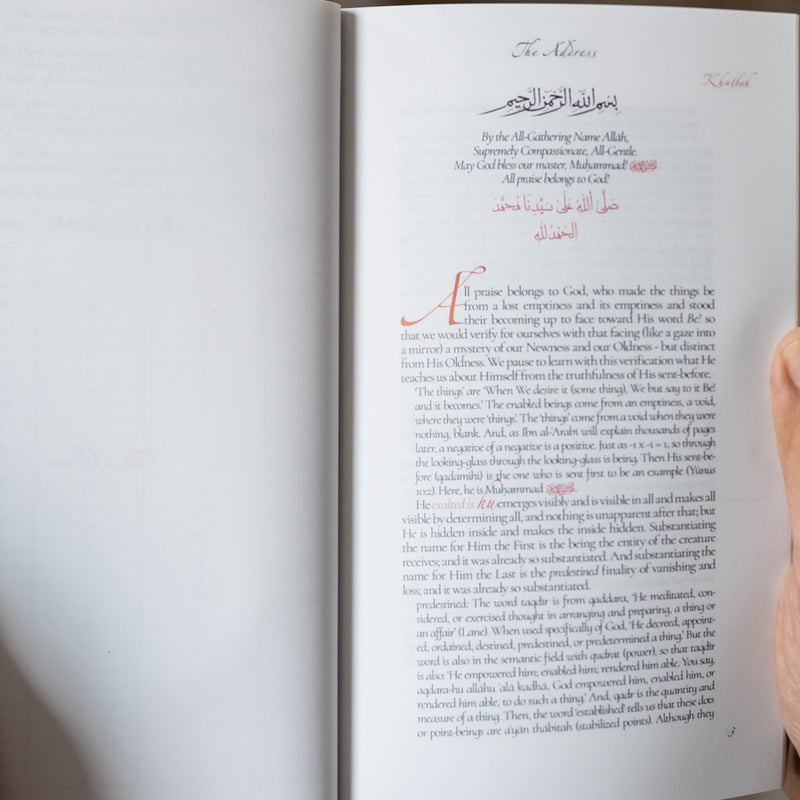 The Address
Khuṭbah
بِسْمِ اللَّهِ الرَّحْمَنِ الرَّحِيمِ
By the All-Gathering Name Allāh,
Supremely Compassionate, All-Gentle.
May God bless our master, Muḥammad!
All praise belongs to God!
صَلَّى اللهُ عَلَى سَيِّدِنَا مُحَمَّدَ
الحَمْدُ لله
All praise belongs to God, who made the things be
from a lost emptiness and its emptiness and stood
their becoming up to face toward His word Be! so
that we would verify for ourselves with that facing (like a gaze into
a mirror) a mystery of our Newness and our Oldness - but distinct
from His Oldness. We pause to learn with this verification what He
teaches us about Himself from the truthfulness of His sent-before.
'The things' are 'When We desire it (some thing), We but say to it Be!
and it becomes.' The enabled beings come from an emptiness, a void,
where they were 'things'. The 'things' come from a void when they were
nothing, blank. And, as Ibn al-ʿArabī will explain thousands of pages
later, a negative of a negative is a positive. Just as -1 x -1 = 1, so through
the looking-glass through the looking-glass is being. Then His sent-be-
fore (qadamihi) is the one who is sent first to be an example (Yūnus
10:2). Here, he is Muḥammad
He exalted is hu emerges visibly and is visible in all and makes all
visible by determining all, and nothing is unapparent after that; but
He is hidden inside and makes the inside hidden. Substantiating
the name for Him the First is the being the entity of the creature
receives; and it was already so substantiated. And substantiating the
name for Him the Last is the predestined finality of vanishing and
loss; and it was already so substantiated.
predestined: The word taqdīr is from qaddara, 'He meditated, con-
sidered, or exercised thought in arranging and preparing, a thing or
an affair' (Lane). When used specifically of God, 'He decreed, appoint-
ed, ordained, destined, predestined, or predetermined a thing.' But the
word is also in the semantic field with qudrat (power), so that taqdīr
is also: 'He empowered him; enabled him; rendered him able. You say,
aqdara-hu allāhu ʿalā kadhā, God empowered him, enabled him, or
rendered him able, to do such a thing.' And, qadr is the quantity and
measure of a thing. Then, the word 'established' tells us that these dots
or point-beings are aʿyān thābitah (stabilized points). Although they
3